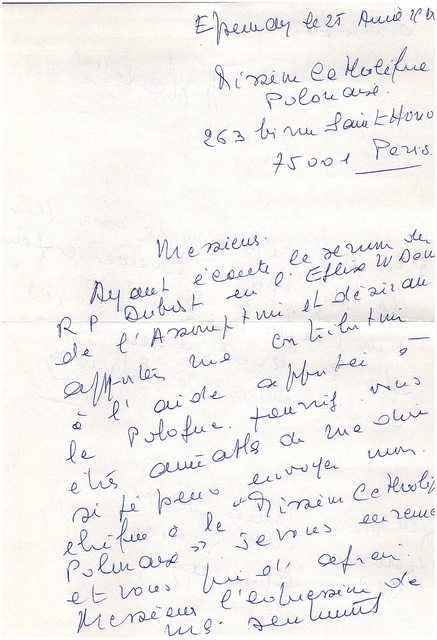 Epernay le 25
Mission Catholique
Polonaise.
263 bis rue Saint Hono
75001 Paris
Messieurs.
Ayant écouté le sermon du
R P Dubost en l'Eglise
de l'Assomption et désirant
apporter une contribution
à l'aide apportée à
la Pologne
de me dire
si je peux envoyer mon
chèque à la "Mission Catholiq
Polonaise" je vous
et vous prie d'
Messieurs l'expression de
me sentiments